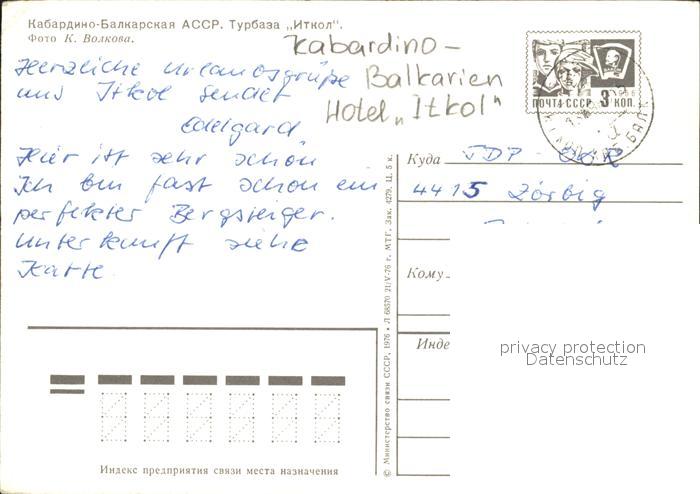 Кабардино-Балкарская АССР. Турбаза „Иткол".
Фото К. Волкова.
Kabardino-
Balkarien
Hotel „Itkol"
Herzliche Urlaubsgrüße
aus Itkol sendet
Edelgard
Hier ist sehr schön
Ich bin fast schon ein
perfekter Bergsteiger.
Unterkunft siehe
Karte.
ПОЧТА СССР 3 КОП.
Куда DDR
4415 Zörbig
Кому
Инде
privacy protection
Datenschutz
© Министерство связи СССР, 1976 • Л 68570 21/V-76 г. МТГ. Зак. 4279. Ц. 5 к.
Индекс предприятия связи места назначения